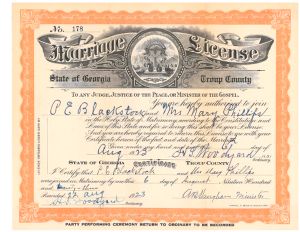 No. 178
Marriage License
State of Georgia Troup County
TO ANY JUDGE, JUSTICE OF THE PEACE, OR MINISTER OF THE GOSPEL.
You are hereby authorized to join
P E Blackstock and Mrs Mary Phillips
in the Holy State of Matrimony, according to the Constitution and
Laws of this State and for so doing this shall be your License.
And you are hereby required to return this
Given under my hand and seal this day of
Aug 1923
STATE OF GEORGIA Certificate TROUP COUNTY
I Certify that P E Blackstock and Mrs Mary Phillips
were joined in Matrimony by me this 6 day of August Nineteen Hundred
and twenty-three
Aug 1923
Minister
PARTY PERFORMING CEREMONY RETURN TO ORDINARY TO BE RECORDED